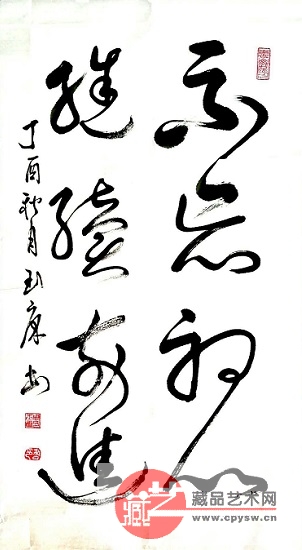 不忘初心
继续前进
丁酉秋月玉康书
藏艺
藏品艺术网
www.cpysw.cn